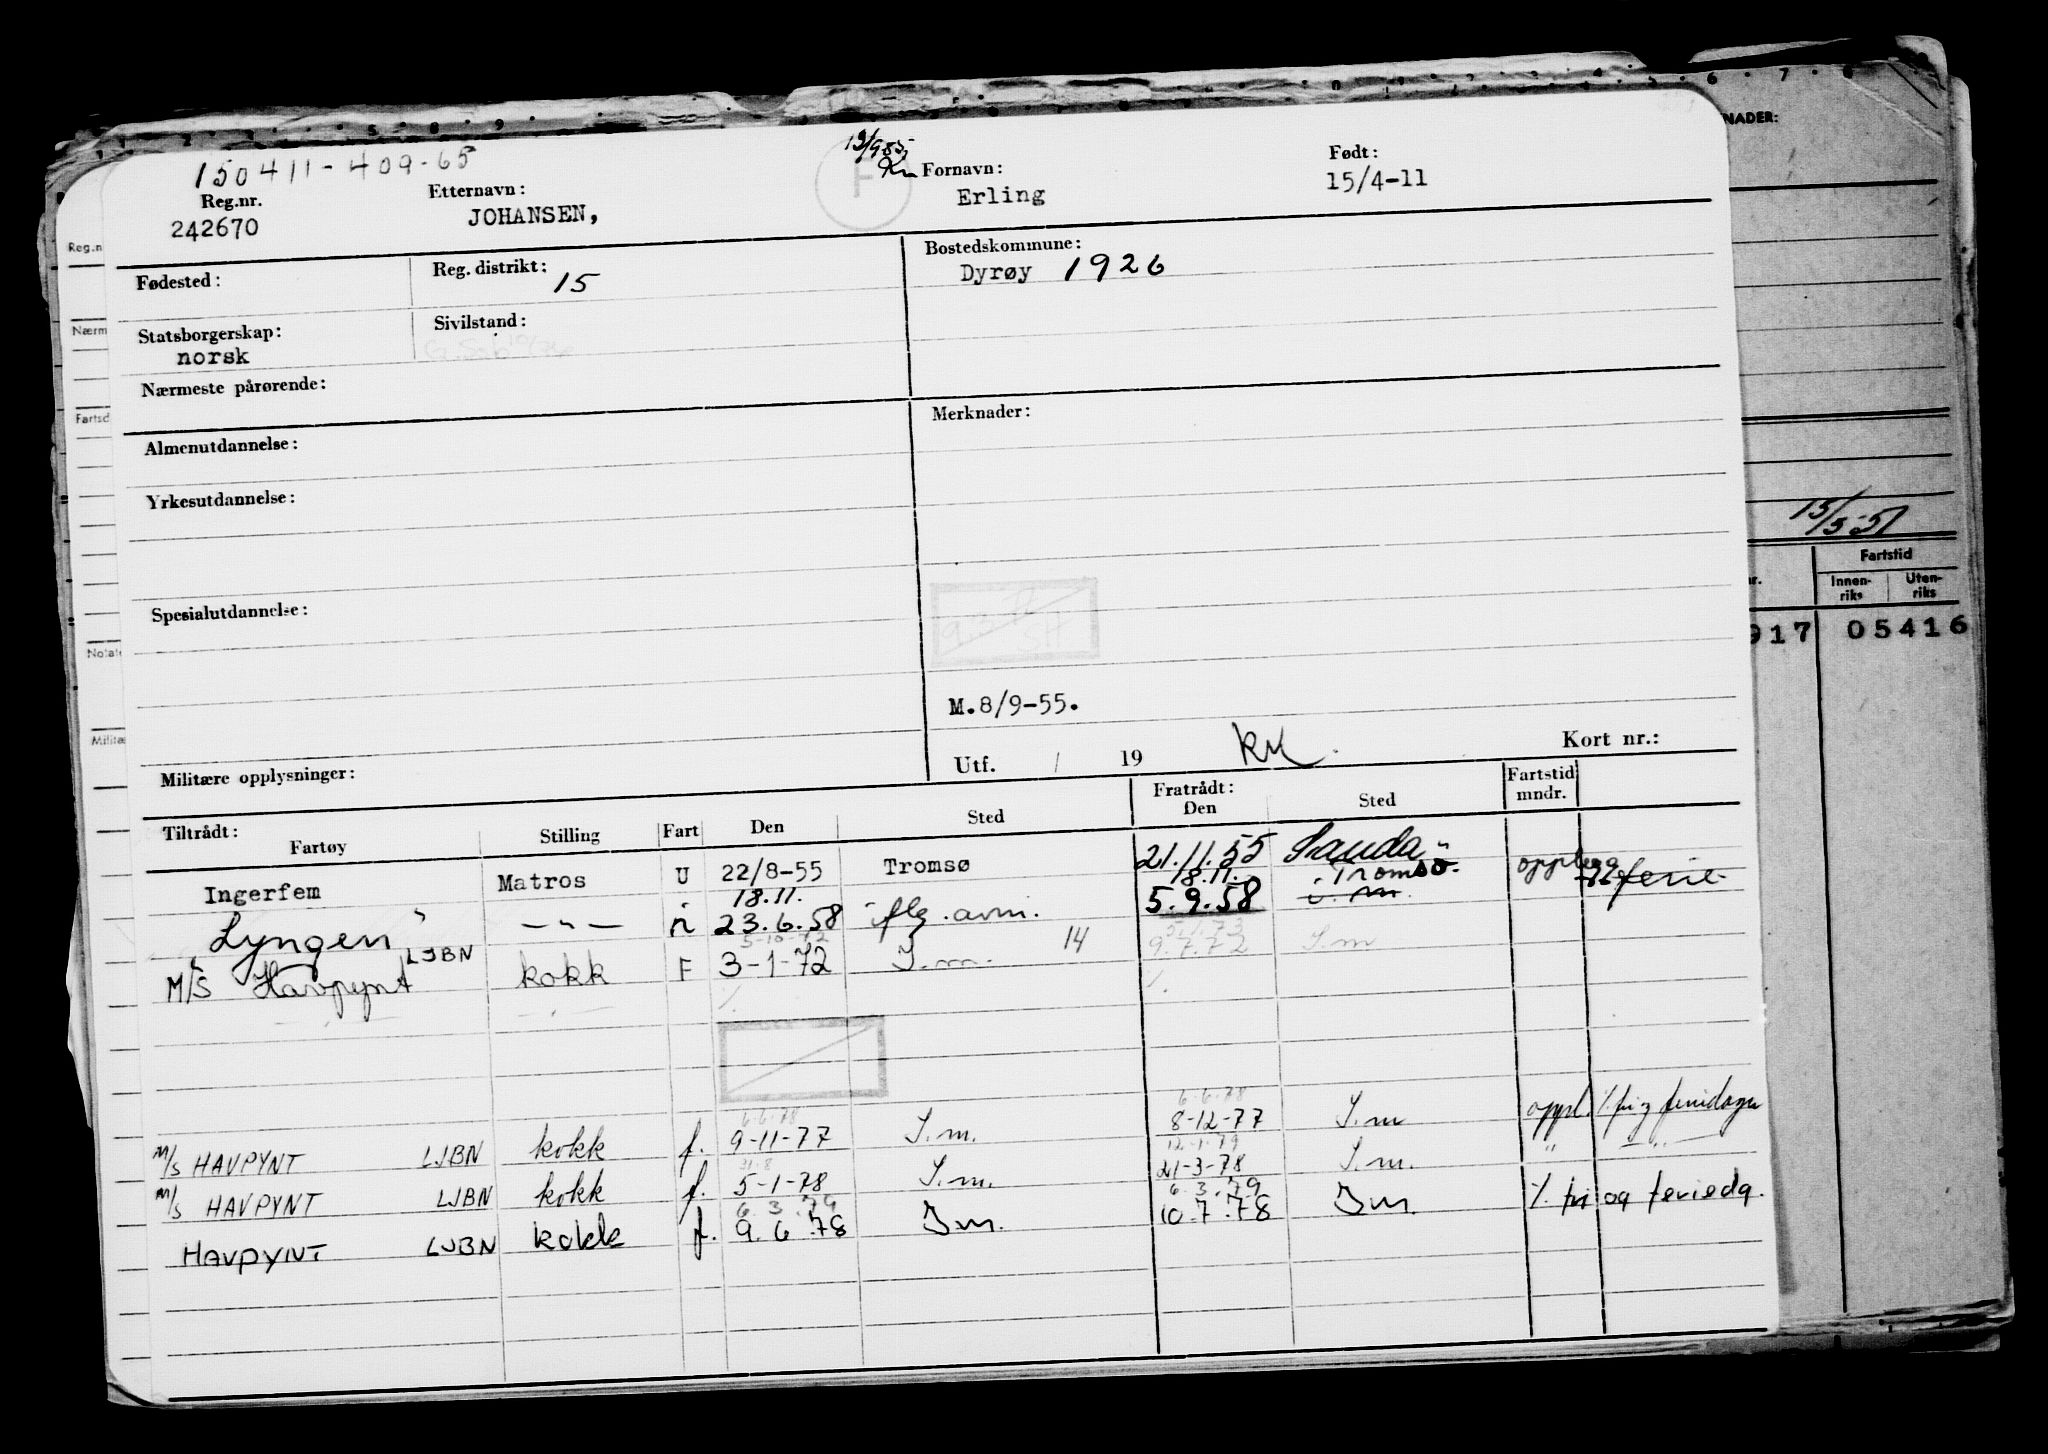 150411-409-65
Reg.nr. Etternavn: Fornavn: Født:
242670 JOHANSEN, F Erling 15/4-11
Fødested: Reg. distrikt: 15 Bostedskommune:
Dyrøy 1926
Statsborgerskap: Sivilstand:
norsk
Nærmeste pårørende:
Almenutdannelse: Merknader:
Yrkesutdannelse:
Spesialutdannelse:
M.8/9-55.
Militære opplysninger: Utf. / 19 Kort nr.:
Tiltrådt: Fratrådt: Fartstid
Fartøy Stilling Fart Den Sted Den Sted mndr.
Ingerfem Matros U 22/8-55 Tromsø 21.11.55 Sauda
18.11. 18.11. Tromsö
Lyngen — " — 23.6.58 iflg. avm. 5.9.58 ferie
5-10-72 5.1.73
M/S Havpynt LJBN kokk F 3-1-72 I.m. 14 9.7.72 I.m
6-6-78 6-6-78
M/S HAVPYNT LJBN kokk f. 9-11-77 I.m. 8-12-77 I.m oppl. % fri g feriedager
31.8 12-1-79
M/S HAVPYNT LJBN kokk f. 5-1-78 I.m. 21-3-78 I.m. " — " —
6.3.79 6.3.79
HAVPYNT LJBN kokk f. 9.6.78 I m. 10.7.78 I m. % fri og feriedg.
NADER:
15/5-51
Fartstid
nr. Innen-riks Uten-riks
917 05416
Reg.n
Nærm
Fartsd
Notate
Militæ